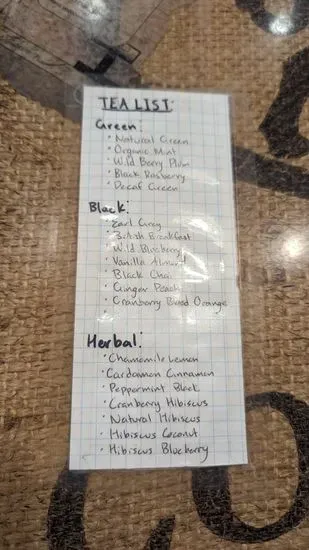 TEA LIST:
Green:
· Natural Green
· Organic Mint
· Wild Berry Plum
· Black Rasberry
· Decaf Green
Black:
· Earl Grey
· British Breakfast
· Wild Blueberry
· Vanilla Almond
· Black Chai
· Ginger Peach
· Cranberry Blood Orange
·
Herbal:
· Chamomile Lemon
· Cardamon Cinnamon
· Peppermint Black
· Cranberry Hibiscus
· Natural Hibiscus
· Hibiscus Coconut
· Hibiscus Blueberry